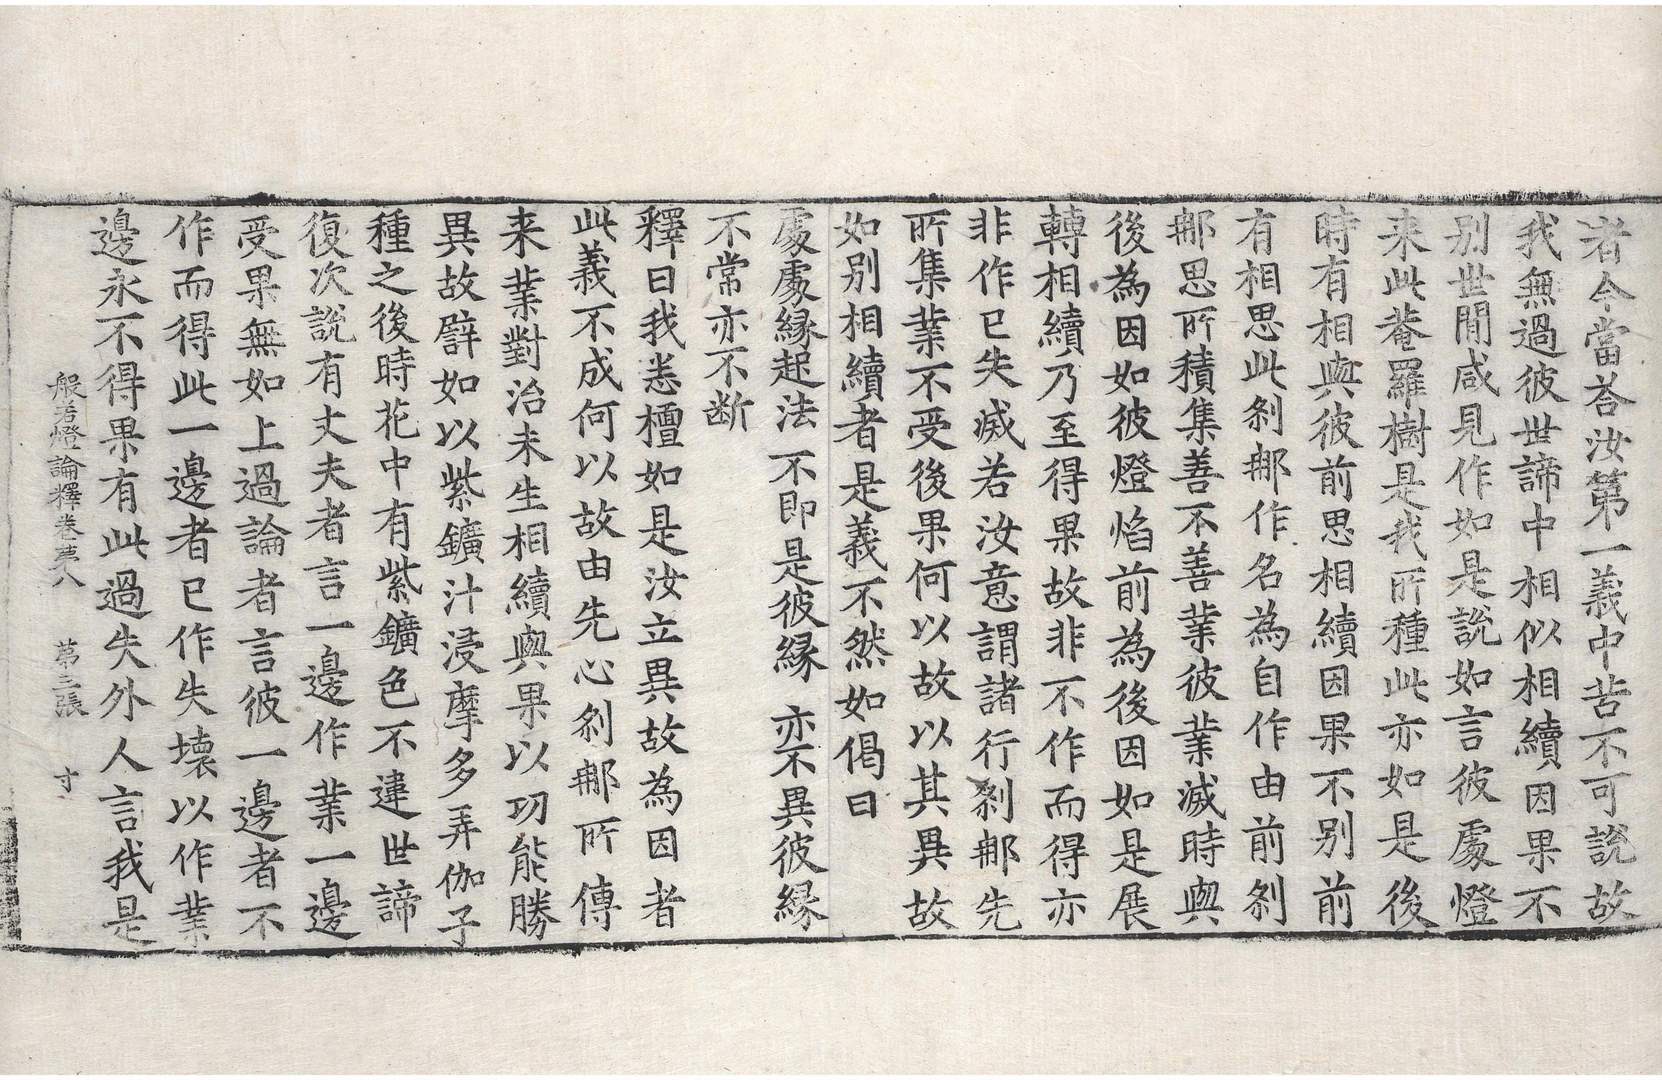 者今當荅汝第一義中苦不可說故
我無過彼世諦中相似相續因果不
别世間咸見作如是說如言彼處燈
来此菴羅樹是我所種此亦如是後
時有相與彼前思相續因果不别前
有相思此刹那作名為自作由前刹
那思所積集善不善業彼業滅時與
後為因如彼燈焰前為後因如是展
轉相續乃至得果故非不作而得亦
非作已失滅若汝意謂諸行刹那先
所集業不受後果何以故以其異故
如别相續者是義不然如偈曰
處處緣起法 不即是彼緣 亦不異彼緣
不常亦不断
釋曰我恙檀如是汝立異故為因者
此義不成何以故由先心刹那所傳
来業對治未生相續與果以功能勝
異故譬如以紫鑛汁浸摩多弄伽子
種之後時花中有紫鑛色不違世諦
復次說有丈夫者言一邊作業一邊
受果無如上過論者言彼一邊者不
作而得此一邊者已作失壞以作業
邊永不得果有此過失外人言我是
般若燈論釋卷第八 第三張 寸